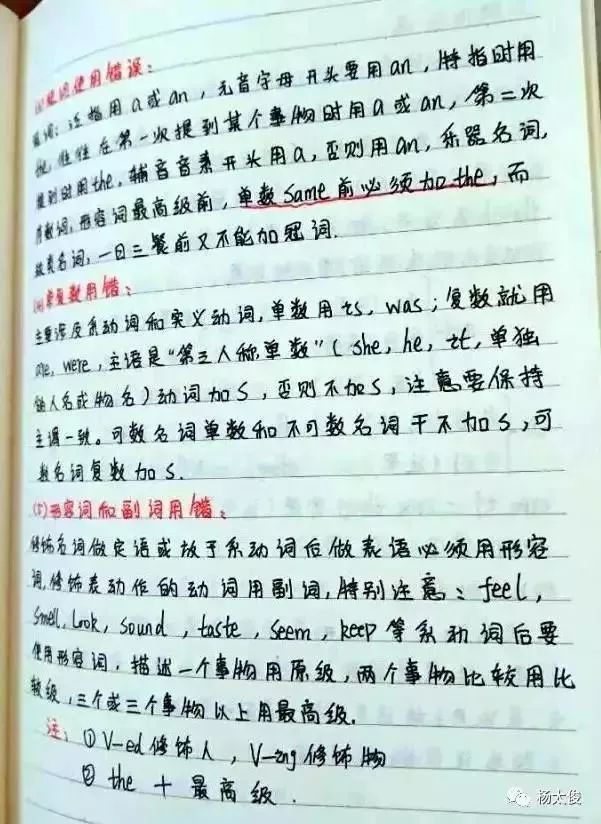 (3)冠词使用错误：
冠词：泛指用a或an，元音字母开头要用an，特指时用
他往往在第一次提到某个事物时用a或an，第二次
提到时用the，辅音音素开头用a，否则用an，乐器名词，
序数词，形容词最高级前，单数same前必须加the，而
球类名词，一日三餐前又不能加冠词.
(4)单复数用错：
主要涉及系动词和实义动词，单数用is，was；复数就用
are，were，主语是“第三人称单数”（she，he，it，单独
的人名或物名）动词加s，否则不加s，注意要保持
主谓一致。可数名词单数和不可数名词干不加s，可
数名词复数加s.
(5)形容词和副词用错：
修饰名词做定语或放于系动词后做表语必须用形容
词，修饰表动作的动词用副词，特别注意：feel，
smell，look，sound，taste，seem，keep等系动词后要
使用形容词，描述一个事物用原级，两个事物比较用比
较级，三个或三个事物以上用最高级.
注：①V-ed修饰人，V-ing修饰物
②the + 最高级.
杨太俊